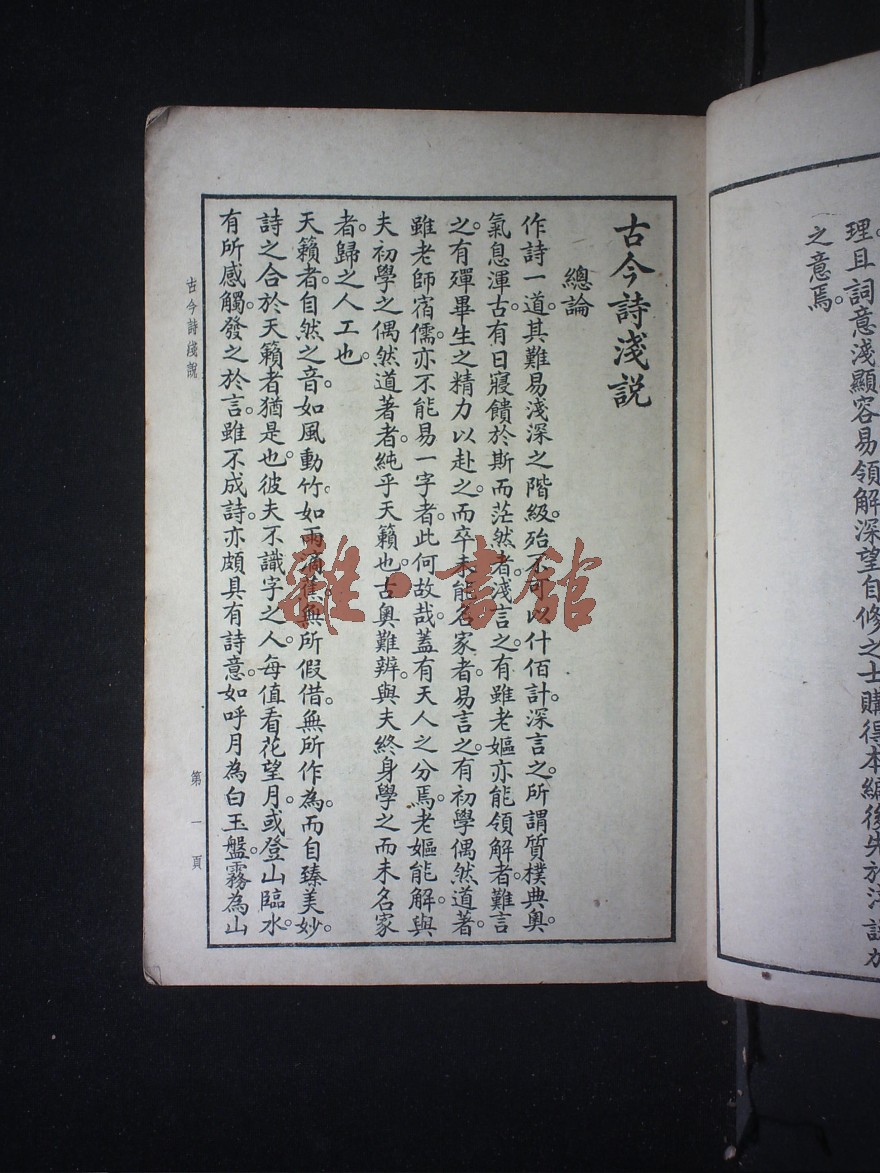 理。且詞意淺顯容易領解深望自修之士購得本編後先於淺說加
之意焉。
古今詩淺說
總論
作詩一道。其難易淺深之階級。殆不可以什佰計。深言之。所謂質樸典奧。
氣息渾古。有日寢饋於斯而茫然者。淺言之。有雖老嫗亦能領解者。難言
之。有殫畢生之精力以赴之。而卒未能名家者。易言之。有初學偶然道著。
雖老師宿儒。亦不能易一字者。此何故哉。蓋有天人之分焉。老嫗能解。與
夫初學之偶然道著者。純乎天籟也。古奧難辨。與夫終身學之而未名家
者。歸之人工也。
天籟者。自然之音。如風動竹。如雨滴蕉。無所假借。無所作為。而自臻美妙。
詩之合於天籟者猶是也。彼夫不識字之人。每值看花望月。或登山臨水。
有所感觸。發之於言。雖不成詩。亦頗具有詩意。如呼月為白玉盤。霧為山
古今詩淺說
第一頁
雜·書館